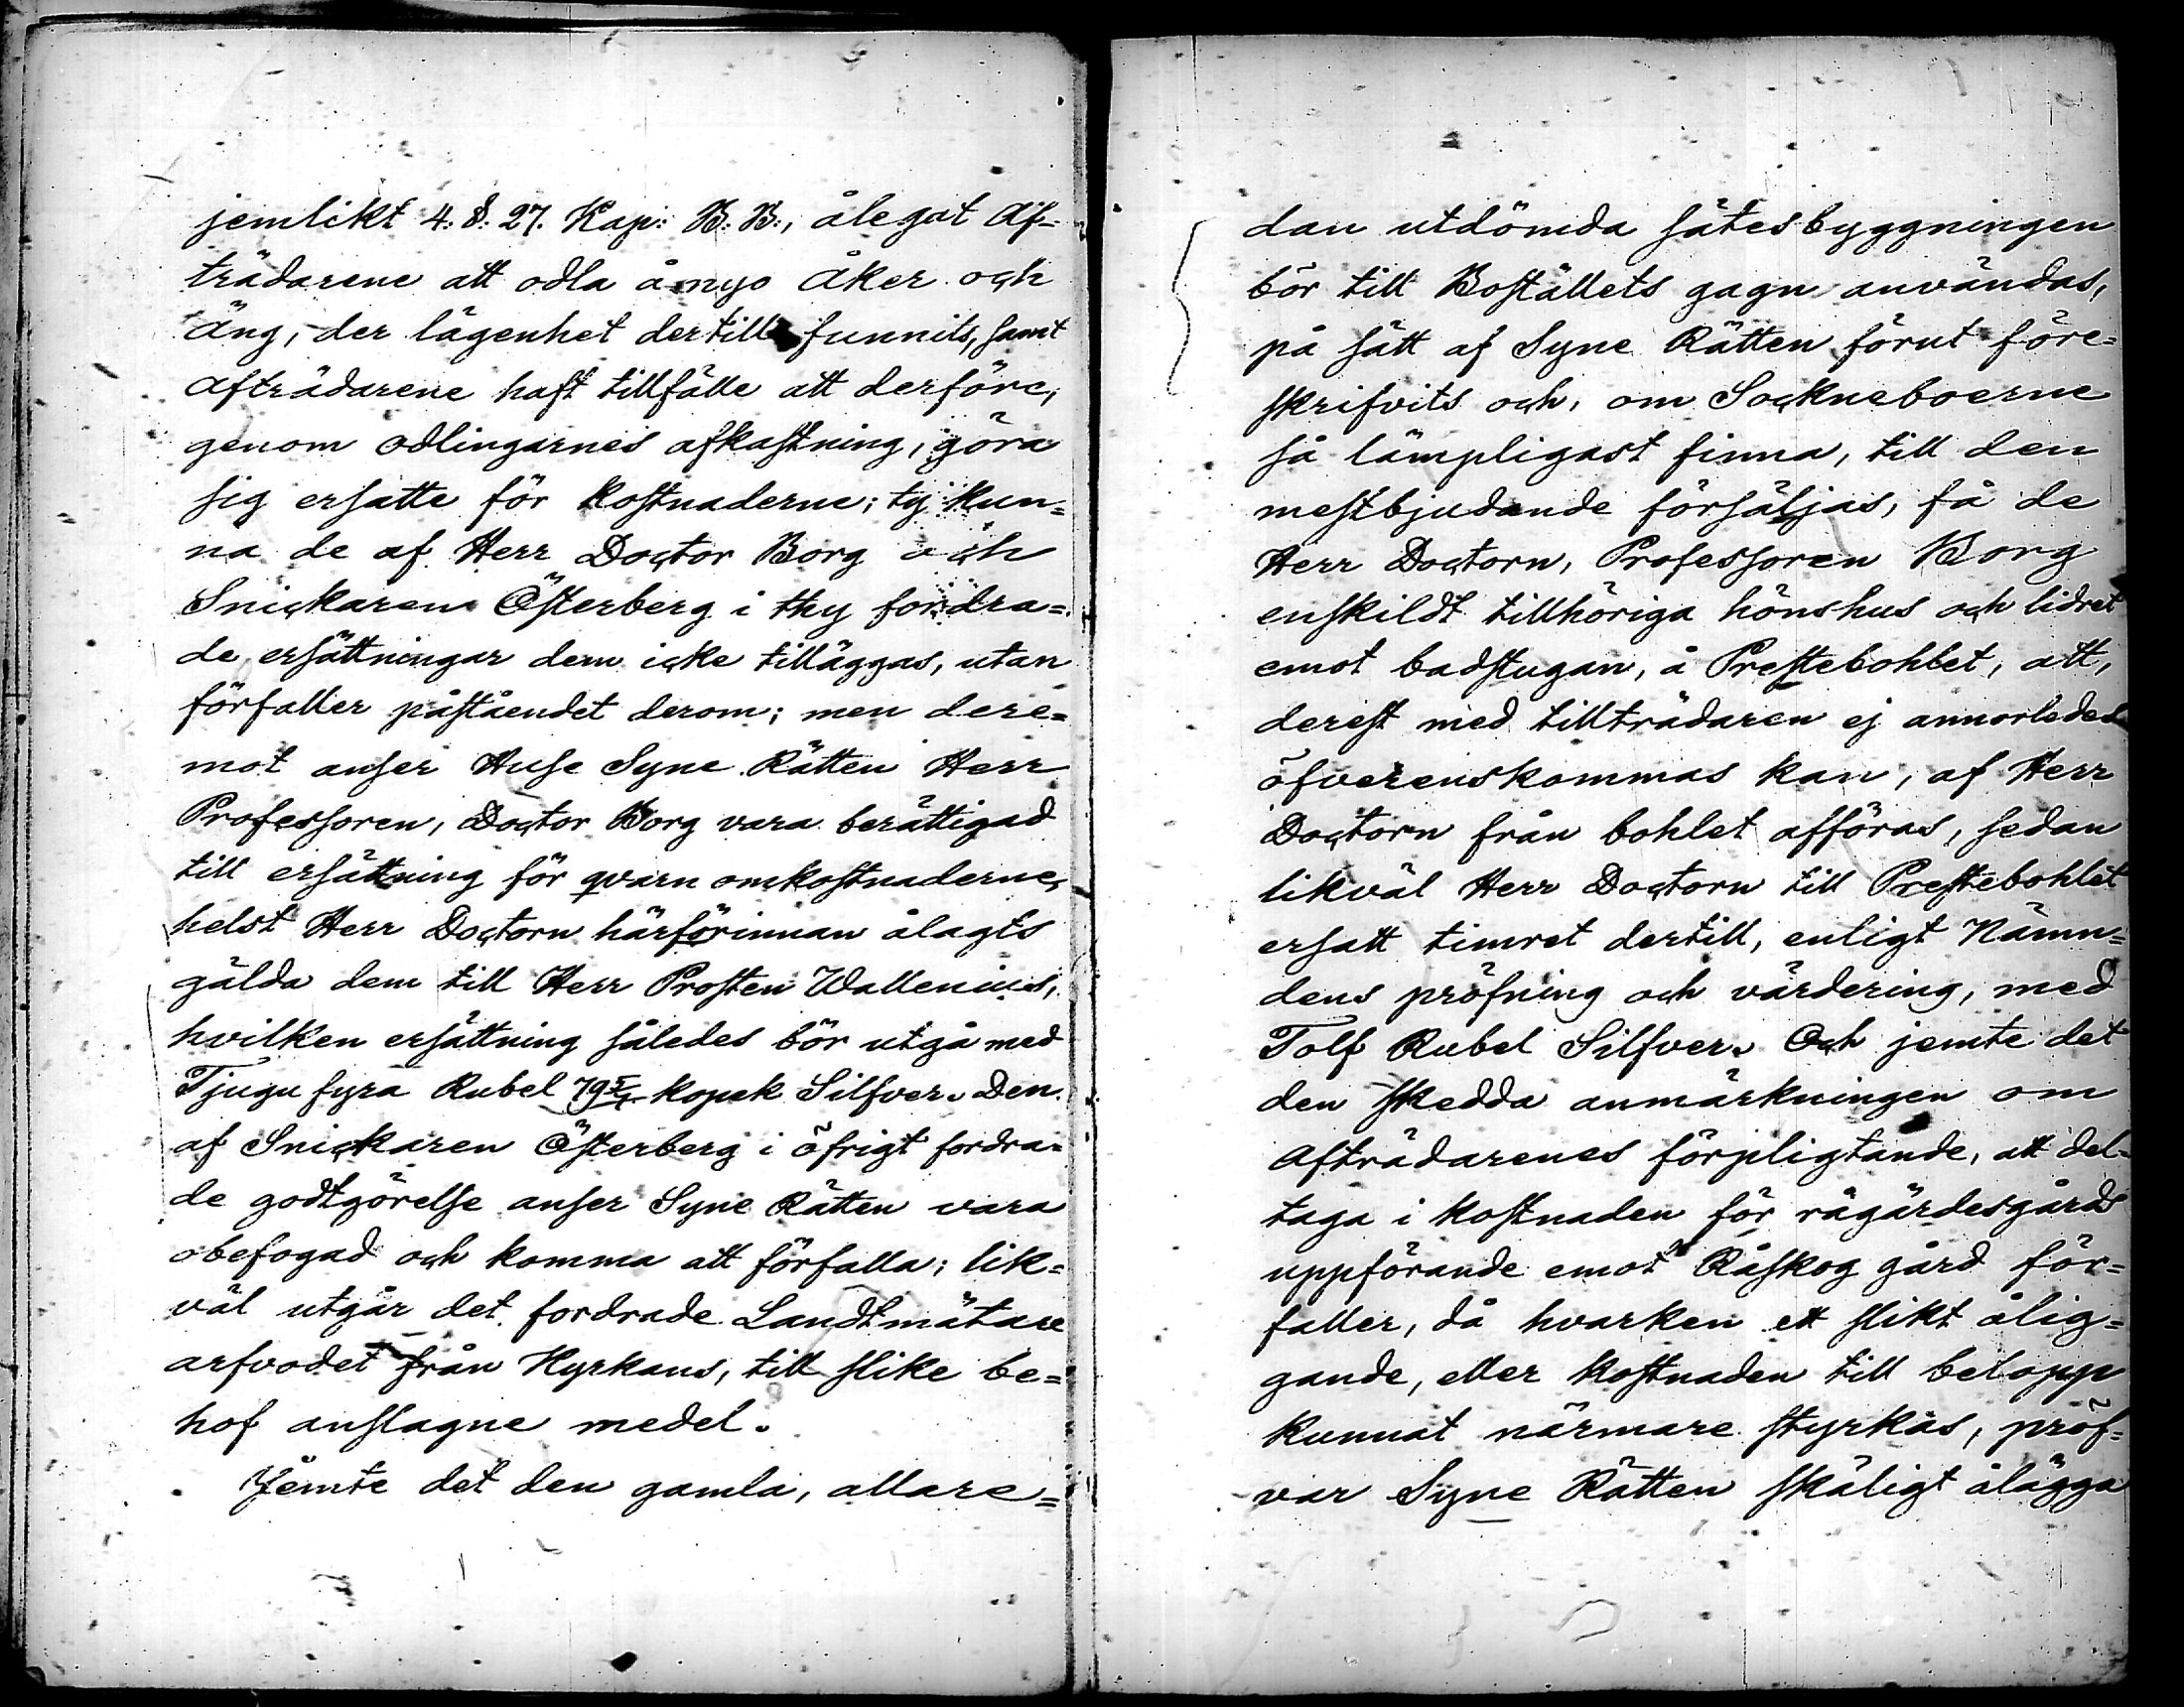 jemlikt 4. §. 27. Kap: B. B., ålegat Af-
trädarene att odla å nyo åker och
äng, der lägenhet dertill funnits, samt
afträdarene haft tillfälle att derföre,
genom odlingarnes afkastning, göra
sig ersatte för kostnaderne; ty kun=
na de af Herr Doctor Borg och
Snickaren Österberg i thy fordra=
de ersättningar dem icke tilläggas, utan
förfaller påståendet derom; men dere=
mot anser Huse Syne Rätten Herr
Professoren, Doctor Borg vara berättigad
till ersättning för qvarn omkostnaderne,
helst Herr Doctorn härförinnan ålagts
gälda dem till Herr Prosten Wallenius,
hvilken ersättning således bör utgå med
Tjugu fyra Rubel 79 5/7 kopek Silfver. Den
af Snickaren Österberg i öfrigt fordra=
de godtgörelse anser Syne Rätten vara
obefogad och komma att förfalla; lik=
väl utgår det fordrade Landtmätare
arfvodet från Kyrkans, till slike be=
hof anslagne medel.
Jemte det den gamla, allare=
dan utdömda sätesbyggningen
bör till Boställets gagn användas,
på sätt af Syne Rätten förut före=
skrifvits och, om Sockneboerne
så lämpligast finna, till den
mestbjudande försäljas, få de
Herr Doctorn, Professoren Borg
enskildt tillhöriga hönshus och lidret
emot badstugan, å Prestebohlet, att,
derest med tillträdaren ej annorledes
öfverenskommas kan, af Herr
Doctorn från bohlet afföras, sedan
likväl Herr Doctorn till Prestebohlet
ersatt timret dertill, enligt Nämn=
dens pröfning och värdering, med
Tolf Rubel Silfver. Och jemte det
den skedda anmärkningen om
Afträdarenes förpligtande, att del-
taga i kostnaden för rågärdesgårds
uppförande emot Råskog gård för=
faller, då hvarken ett slikt ålig=
gande, eller kostnaden till belopp
kunnat närmare styrkas, pröf=
var Syne Rätten skäligt ålägga